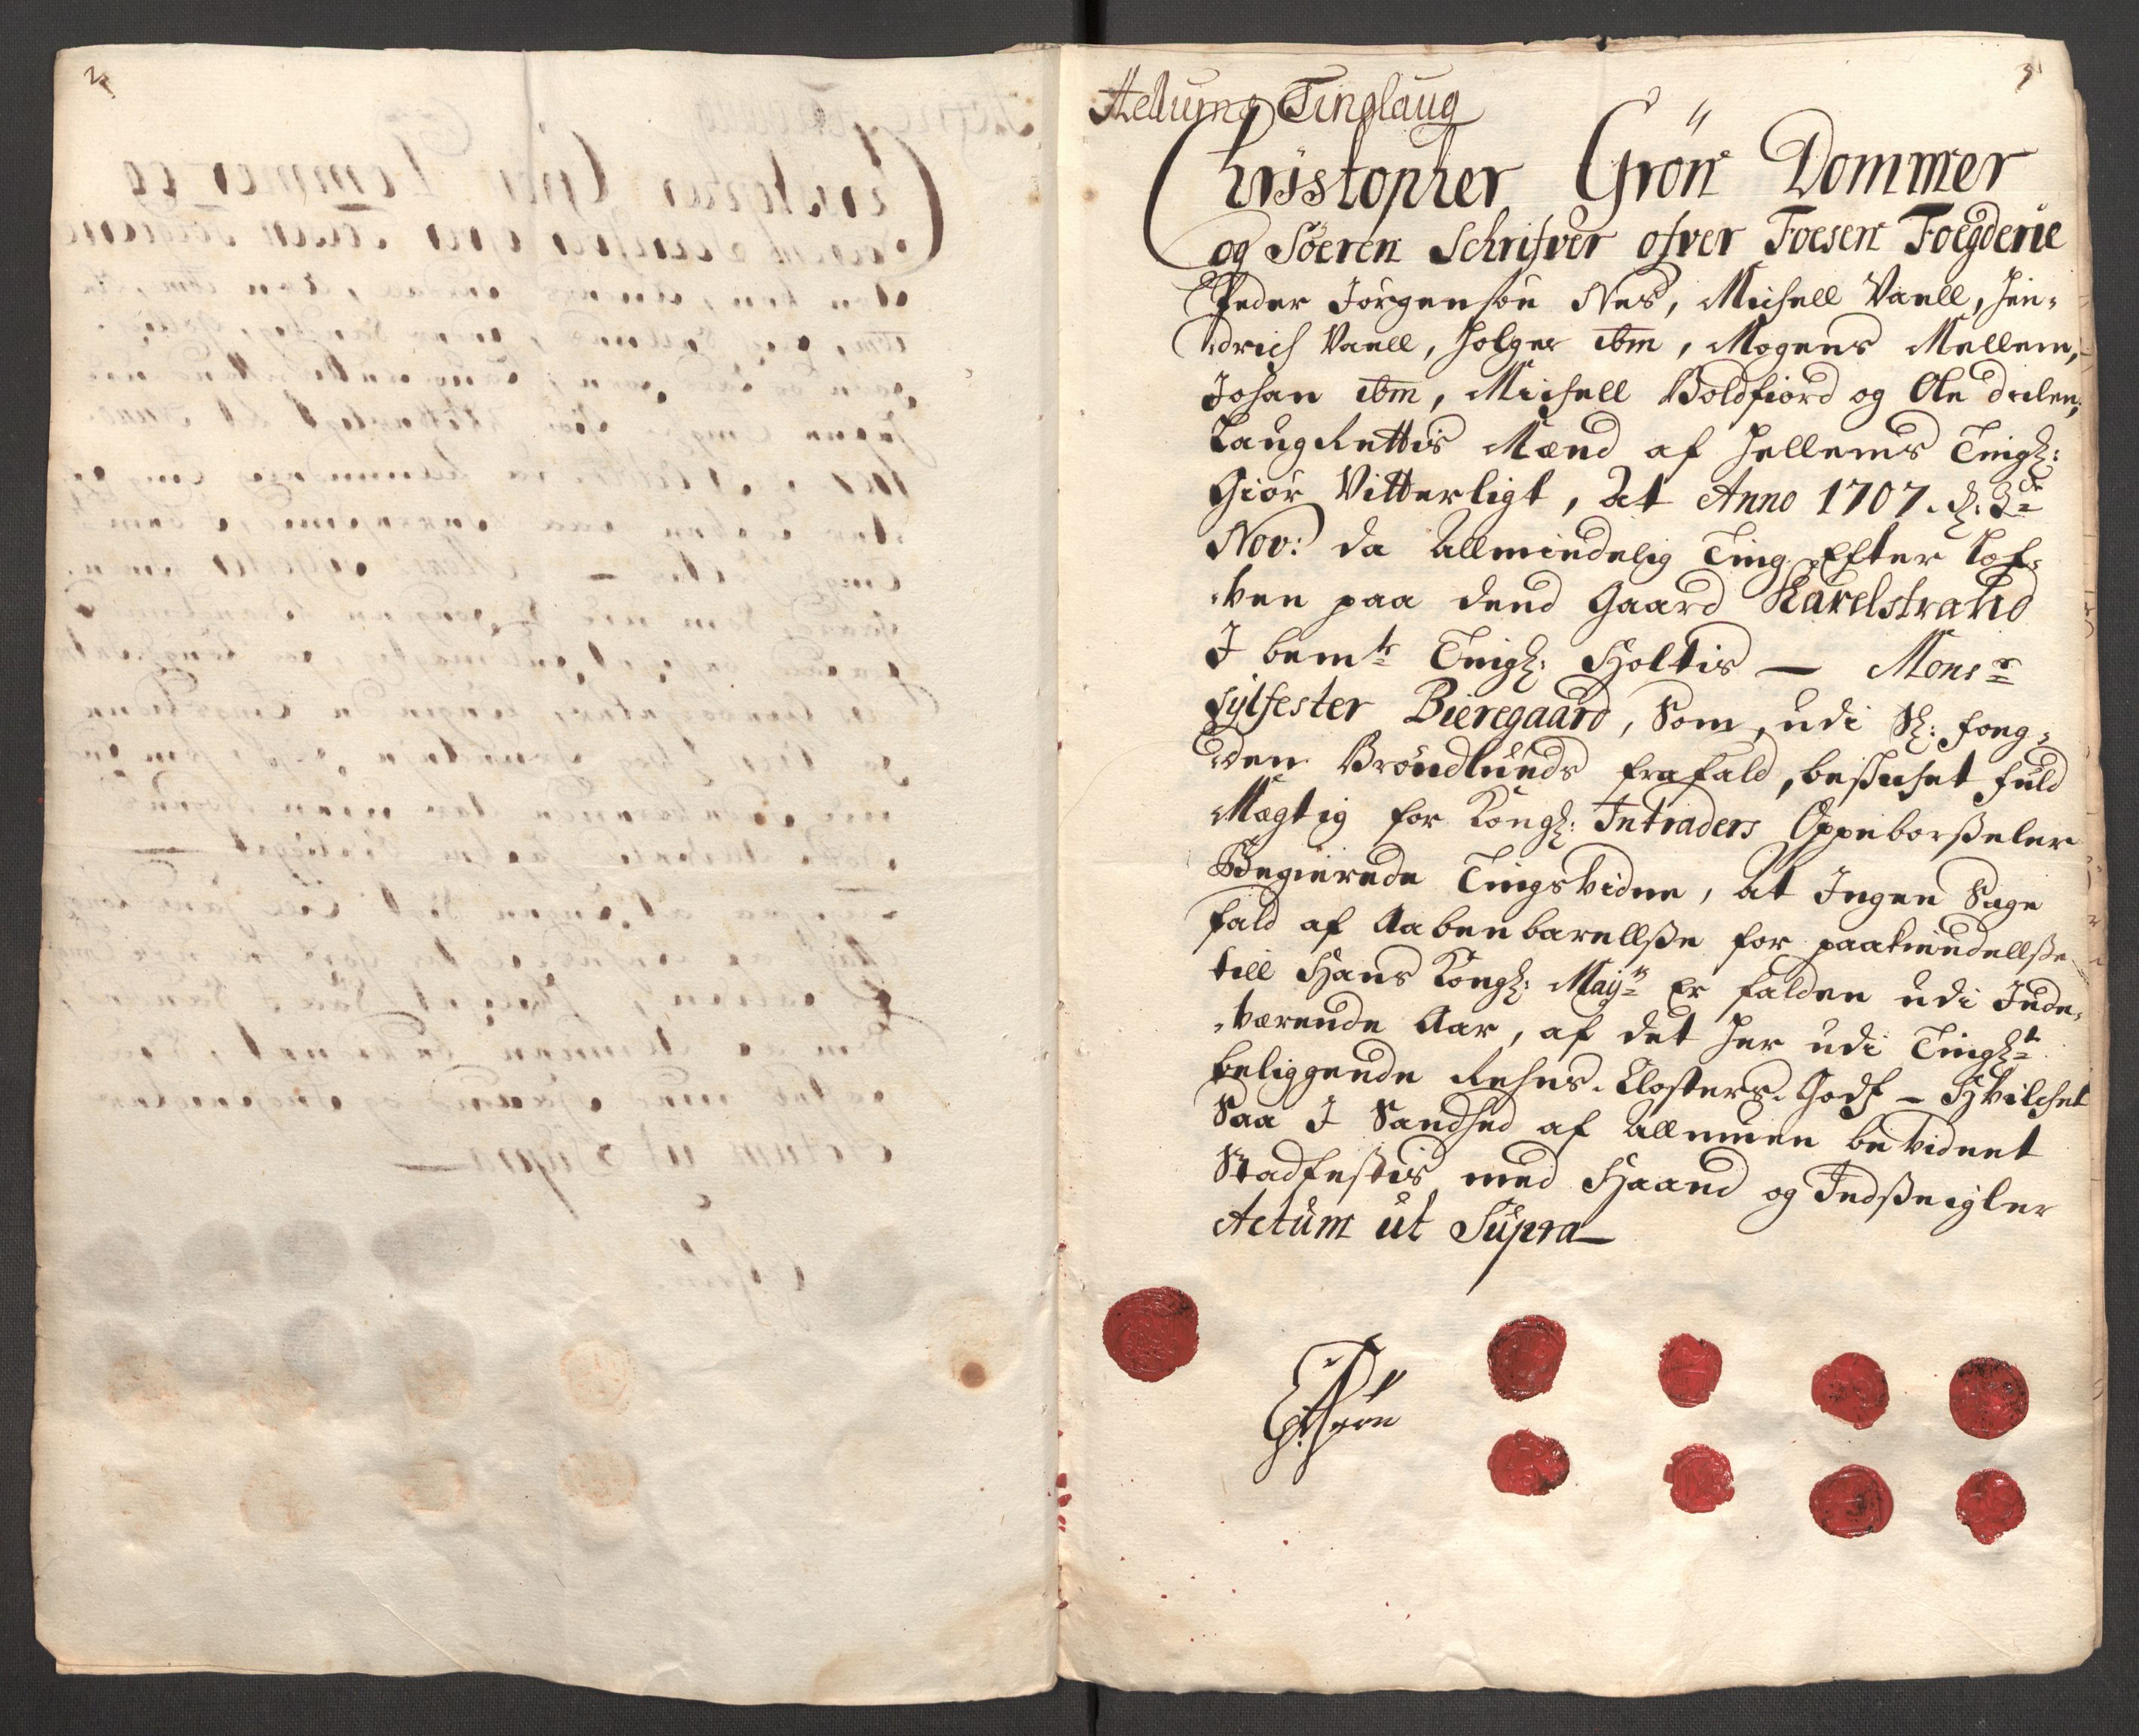 2
3
Hellums Tinglaug
Christopher Grön Dommer
og Söeren Schrifver ofver Foesen Foegderie
Peder Jörgensön Nes, Michell Vaell, Hen-
drich Vaell, Holger ibm, Mogens Mellem,
Johan ibm, Michell Boldfiord og Ole
Laug Rettis Mænd af Hellems Tingl:
Giör Vitterligt, at Anno 1707. d: 3de
Nov: da Allmindelig Ting Efter Lof-
ven paa dend Gaard Karelstrand
I bemte Tingl: Holtis — Monsr
Sylfester Bieregaard, Som, udi Sl: Foug-
den Bröndlunds frafald, beskichet fuld
Mægtig for Kongl: Intraders Oppeborsseler
Begierede Tingsvidne, at Ingen Sage
fald af Aabenbarellsse for paakiendellsse
till Hans Kongl: Mayts Er falden udi Inde-
værende Aar, af det her udi Tinglt
beliggende Rehns Closters Godts – Hvilchet
Saa I Sandhed af Allmuen bevidnet
Stadfestis med Haand og Indsseigler
Actum ut Supra —
CGrön